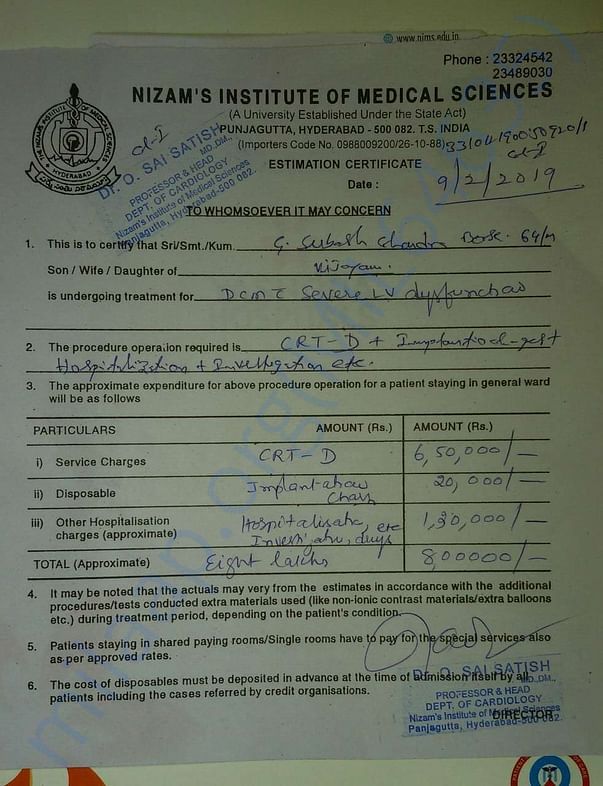 www.nims.edu.in
Phone : 23324542
23489030
NIZAM'S INSTITUTE OF MEDICAL SCIENCES
(A University Established Under the State Act)
PUNJAGUTTA, HYDERABAD - 500 082. T.S. INDIA
(Importers Code No. 0988009200/26-10-88)
ESTIMATION CERTIFICATE
Date : 9/2/2019
Dr. O. SAI SATISH
MD.,DM.,
PROFESSOR & HEAD
DEPT. OF CARDIOLOGY
Nizam's Institute of Medical Sciences
Panjagutta, Hyderabad-500 082.
TO WHOMSOEVER IT MAY CONCERN
1. This is to certify that Sri/Smt./Kum. G. Subash Chandra Bose. 64/M
Son / Wife / Daughter of
is undergoing treatment for DCM Severe LV dysfunction
2. The procedure operation required is CRT-D +
Hospitalization + Investigation etc.
3. The approximate expenditure for above procedure operation for a patient staying in general ward
will be as follows
PARTICULARS AMOUNT (Rs.) AMOUNT (Rs.)
i) Service Charges CRT-D 6,50,000/-
ii) Disposable Implantation 20,000/-
iii) Other Hospitalisation
charges (approximate) etc 1,30,000/-
TOTAL (Approximate) Eight lakhs 8,00000/-
4. It may be noted that the actuals may very from the estimates in accordance with the additional
procedures/tests conducted extra materials used (like non-ionic contrast materials/extra balloons
etc.) during treatment period, depending on the patient's condition.
5. Patients staying in shared paying rooms/Single rooms have to pay for the special services also
as per approved rates.
6. The cost of disposables must be deposited in advance at the time of admission itself by all
patients including the cases referred by credit organisations.
Dr. O. SAI SATISH
MD.,DM.,
PROFESSOR & HEAD
DEPT. OF CARDIOLOGY
Nizam's Institute of Medical Sciences
Panjagutta, Hyderabad-500 082.
DIRECTOR